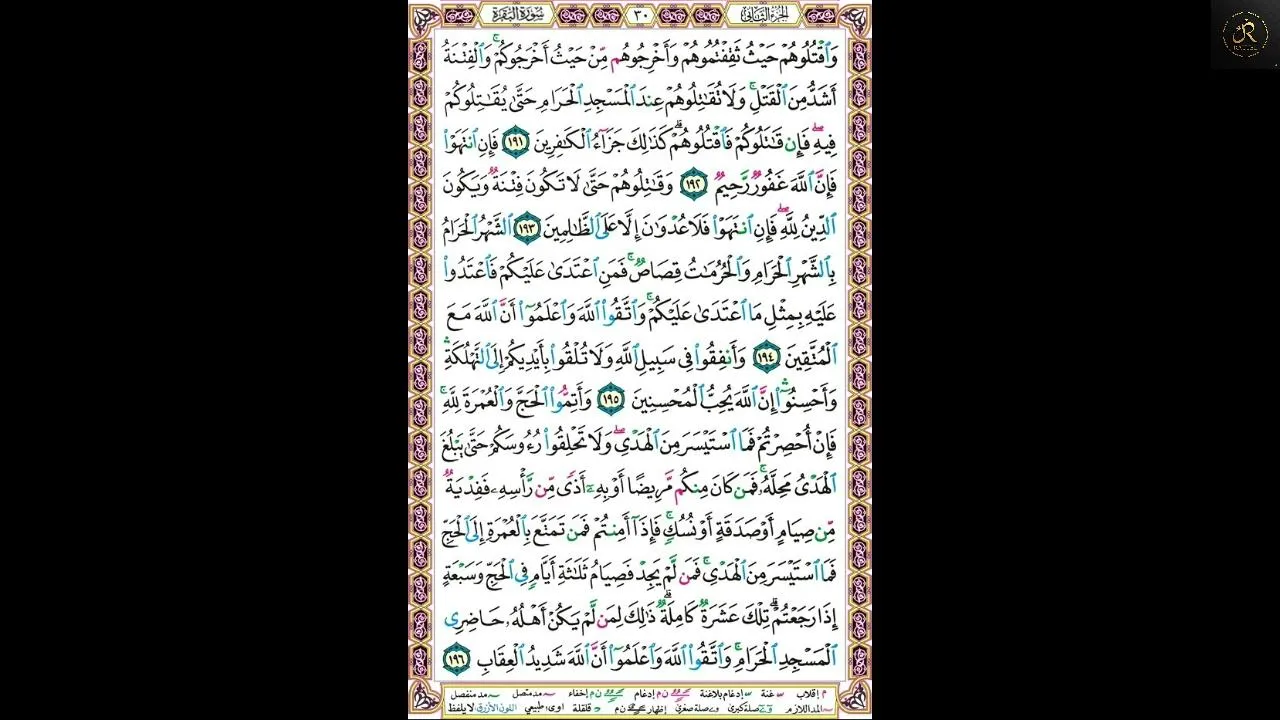 الجزء الثاني ٣٠ سورة البقرة
وَٱقْتُلُوهُمْ حَيْثُ ثَقِفْتُمُوهُمْ وَأَخْرِجُوهُم مِّنْ حَيْثُ أَخْرَجُوكُمْ ۚ وَٱلْفِتْنَةُ
أَشَدُّ مِنَ ٱلْقَتْلِ ۚ وَلَا تُقَٰتِلُوهُمْ عِندَ ٱلْمَسْجِدِ ٱلْحَرَامِ حَتَّىٰ يُقَٰتِلُوكُمْ
فِيهِ ۖ فَإِن قَٰتَلُوكُمْ فَٱقْتُلُوهُمْ ۗ كَذَٰلِكَ جَزَآءُ ٱلْكَٰفِرِينَ ١٩١ فَإِنِ ٱنتَهَوْا۟
فَإِنَّ ٱللَّهَ غَفُورٌ رَّحِيمٌ ١٩٢ وَقَٰتِلُوهُمْ حَتَّىٰ لَا تَكُونَ فِتْنَةٌ وَيَكُونَ
ٱلدِّينُ لِلَّهِ ۖ فَإِنِ ٱنتَهَوْا۟ فَلَا عُدْوَٰنَ إِلَّا عَلَى ٱلظَّٰلِمِينَ ١٩٣ ٱلشَّهْرُ ٱلْحَرَامُ
بِٱلشَّهْرِ ٱلْحَرَامِ وَٱلْحُرُمَٰتُ قِصَاصٌ ۚ فَمَنِ ٱعْتَدَىٰ عَلَيْكُمْ فَٱعْتَدُوا۟
عَلَيْهِ بِمِثْلِ مَا ٱعْتَدَىٰ عَلَيْكُمْ ۚ وَٱتَّقُوا۟ ٱللَّهَ وَٱعْلَمُوٓا۟ أَنَّ ٱللَّهَ مَعَ
ٱلْمُتَّقِينَ ١٩٤ وَأَنفِقُوا۟ فِى سَبِيلِ ٱللَّهِ وَلَا تُلْقُوا۟ بِأَيْدِيكُمْ إِلَى ٱلتَّهْلُكَةِ ۛ
وَأَحْسِنُوٓا۟ ۛ إِنَّ ٱللَّهَ يُحِبُّ ٱلْمُحْسِنِينَ ١٩٥ وَأَتِمُّوا۟ ٱلْحَجَّ وَٱلْعُمْرَةَ لِلَّهِ ۚ
فَإِنْ أُحْصِرْتُمْ فَمَا ٱسْتَيْسَرَ مِنَ ٱلْهَدْىِ ۖ وَلَا تَحْلِقُوا۟ رُءُوسَكُمْ حَتَّىٰ يَبْلُغَ
ٱلْهَدْىُ مَحِلَّهُۥ ۚ فَمَن كَانَ مِنكُم مَّرِيضًا أَوْ بِهِۦٓ أَذًى مِّن رَّأْسِهِۦ فَفِدْيَةٌ
مِّن صِيَامٍ أَوْ صَدَقَةٍ أَوْ نُسُكٍ ۚ فَإِذَآ أَمِنتُمْ فَمَن تَمَتَّعَ بِٱلْعُمْرَةِ إِلَى ٱلْحَجِّ
فَمَا ٱسْتَيْسَرَ مِنَ ٱلْهَدْىِ ۚ فَمَن لَّمْ يَجِدْ فَصِيَامُ ثَلَٰثَةِ أَيَّامٍ فِى ٱلْحَجِّ وَسَبْعَةٍ
إِذَا رَجَعْتُمْ ۗ تِلْكَ عَشَرَةٌ كَامِلَةٌ ۗ ذَٰلِكَ لِمَن لَّمْ يَكُنْ أَهْلُهُۥ حَاضِرِى
ٱلْمَسْجِدِ ٱلْحَرَامِ ۚ وَٱتَّقُوا۟ ٱللَّهَ وَٱعْلَمُوٓا۟ أَنَّ ٱللَّهَ شَدِيدُ ٱلْعِقَابِ ١٩٦
م إقلاب غنة إدغام بلاغنة ن م إدغام ن م إخفاء مد متصل مد منفصل
المد اللازم صلة كبرى صلة صغرى إظهار ن م قلقلة اوى طبيعي اللون الأزرق لا يلفظ